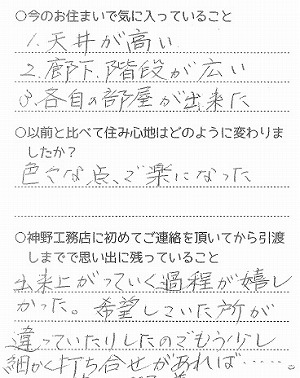 ○今のお住まいで気に入っていること
1.天井が高い
2.廊下、階段が広い
3.各自の部屋が出来た
○以前と比べて住み心地はどのように変わりま
したか？
色々な点、で楽になった
○神野工務店に初めてご連絡を頂いてから引渡
しまでで思い出に残っていること
出来上がっていく過程が嬉し
かった。希望していた所が
違っていたりしたのでもう少し
細かく打ち合せがあれば……